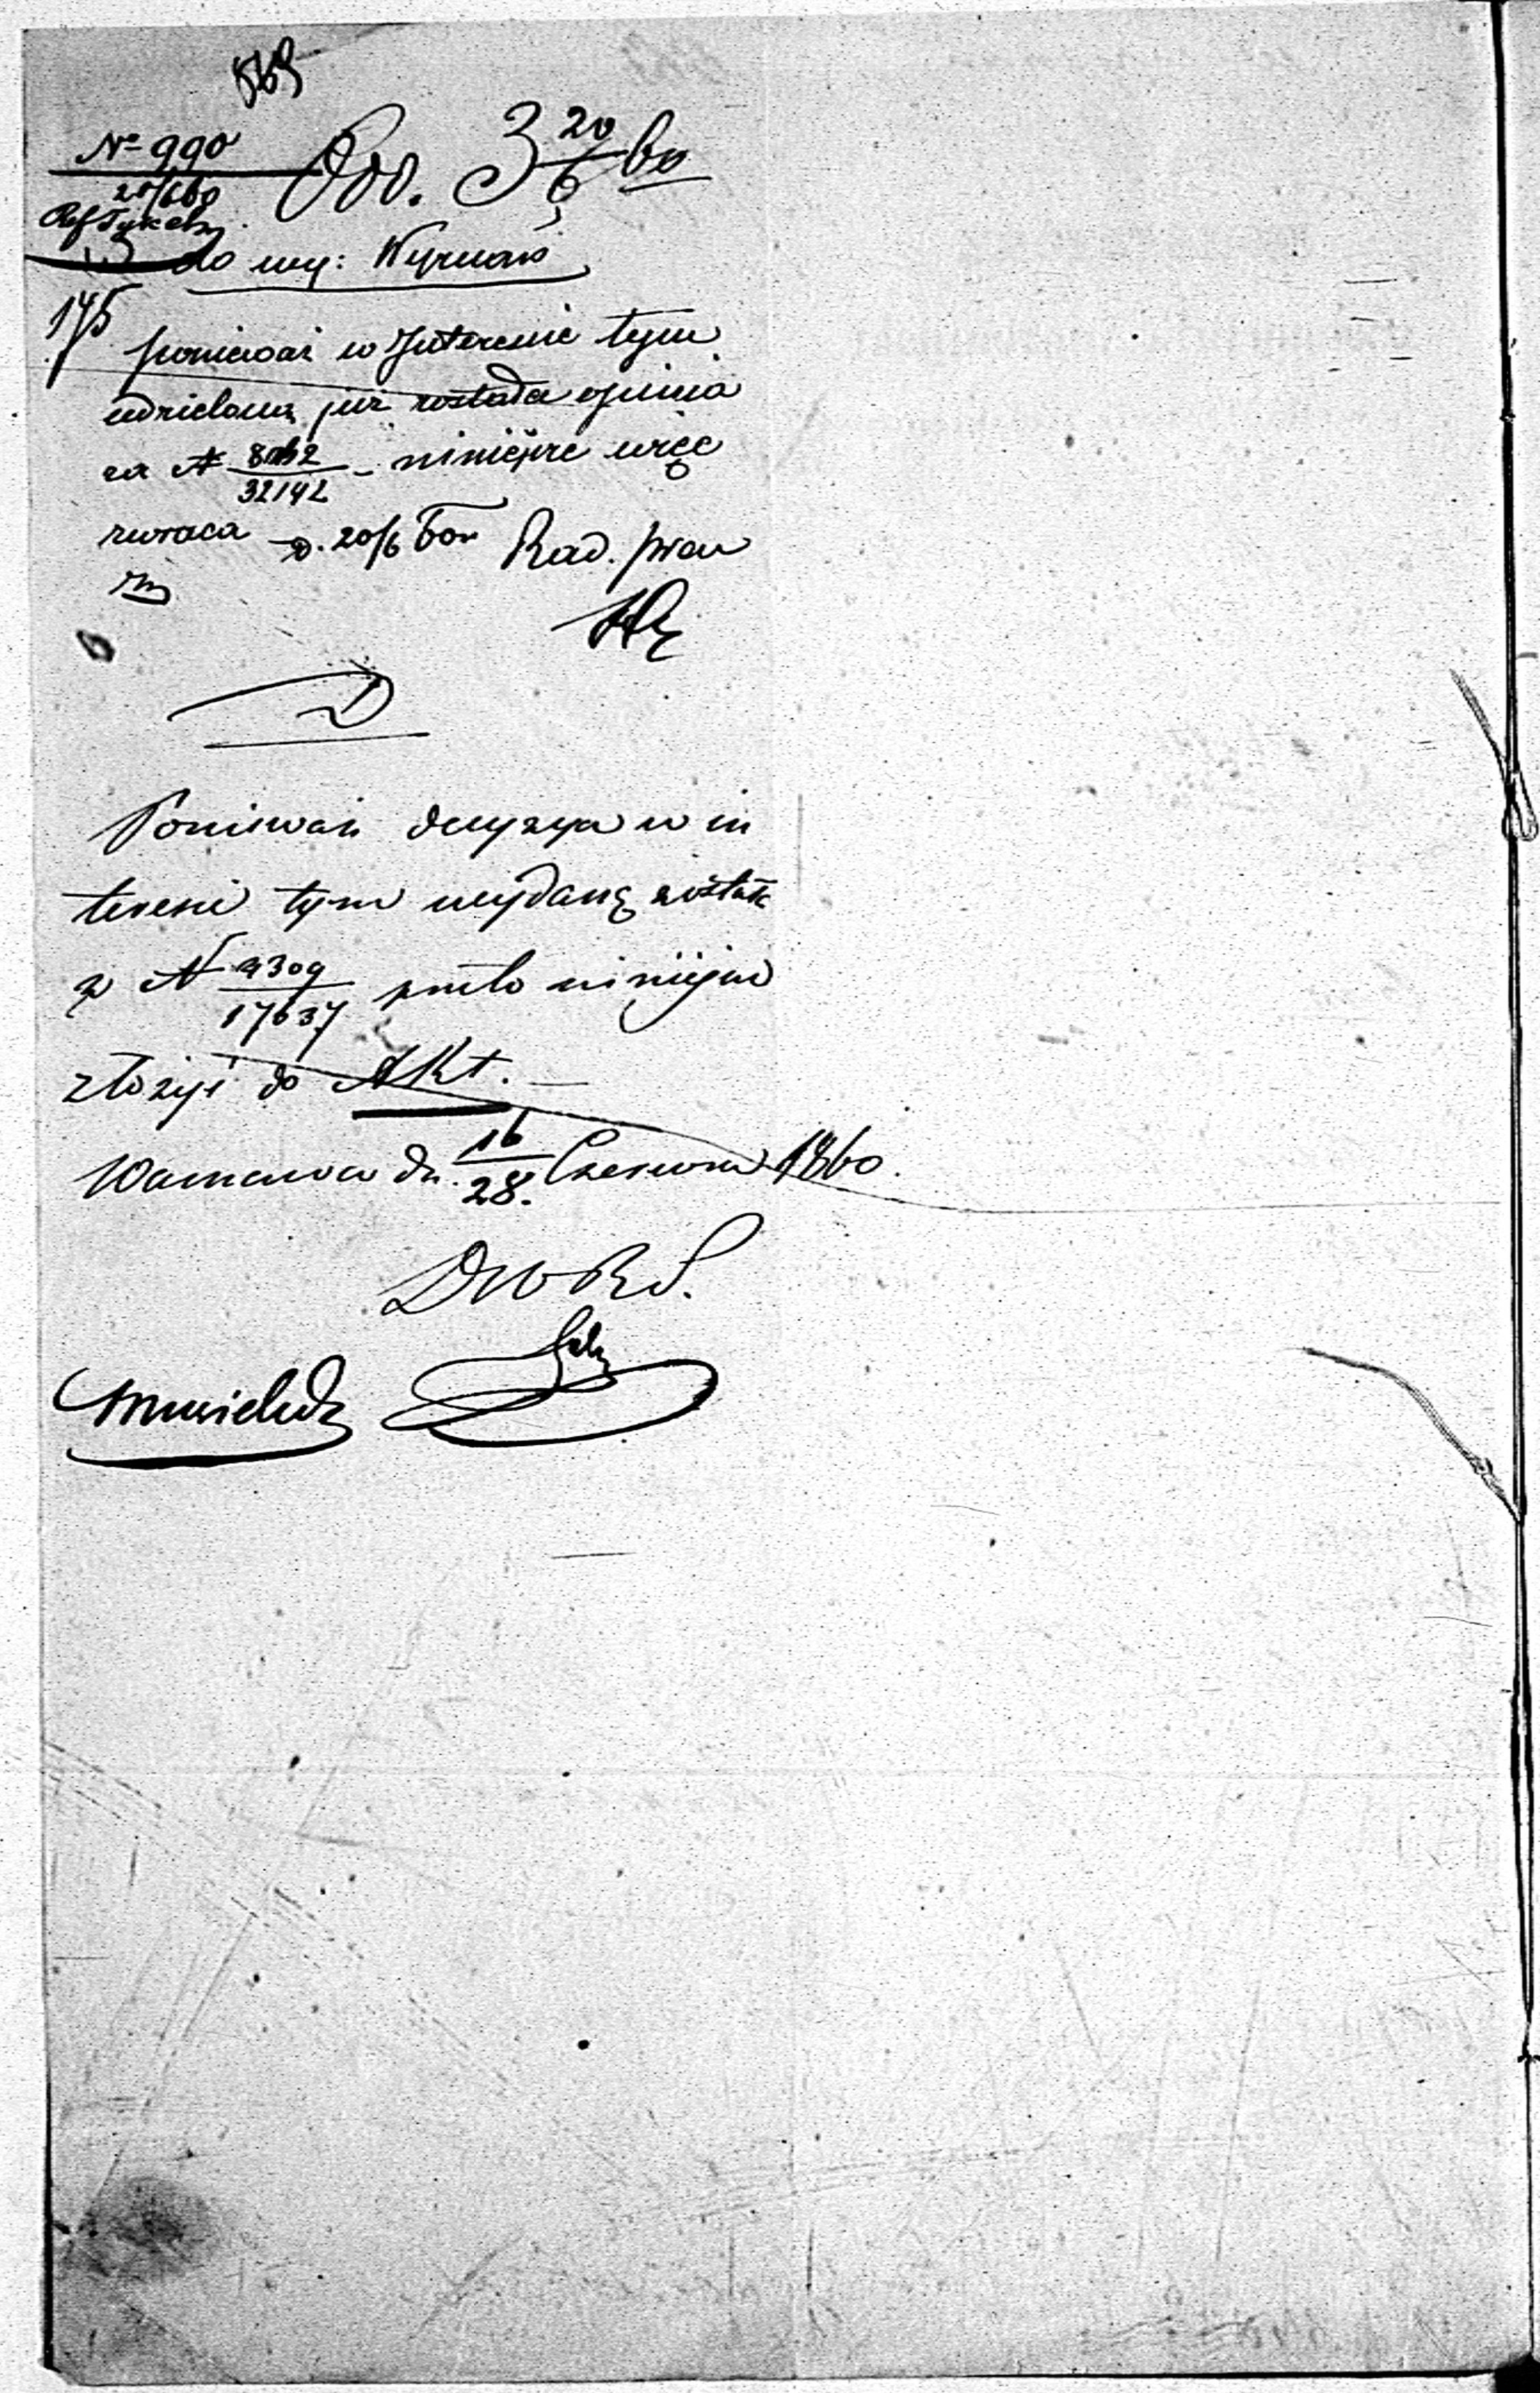 № 990
20/6 60
Odd. 3 20/6 60
do wy: Wyznań
145
ponieważ w Interesie tym
udzieloną już została opinia
za № 8062/32142 – niniejsze więc
zwraca D. 20/6 60 r Rad. praw
D
Ponieważ decyzya w in
teresie tym wydaną została
z № 9309/17637 przeto niniejsze
złożyć do Akt. —
Warszawa dn. 16/28. Czerwca 1860.
DWRS.